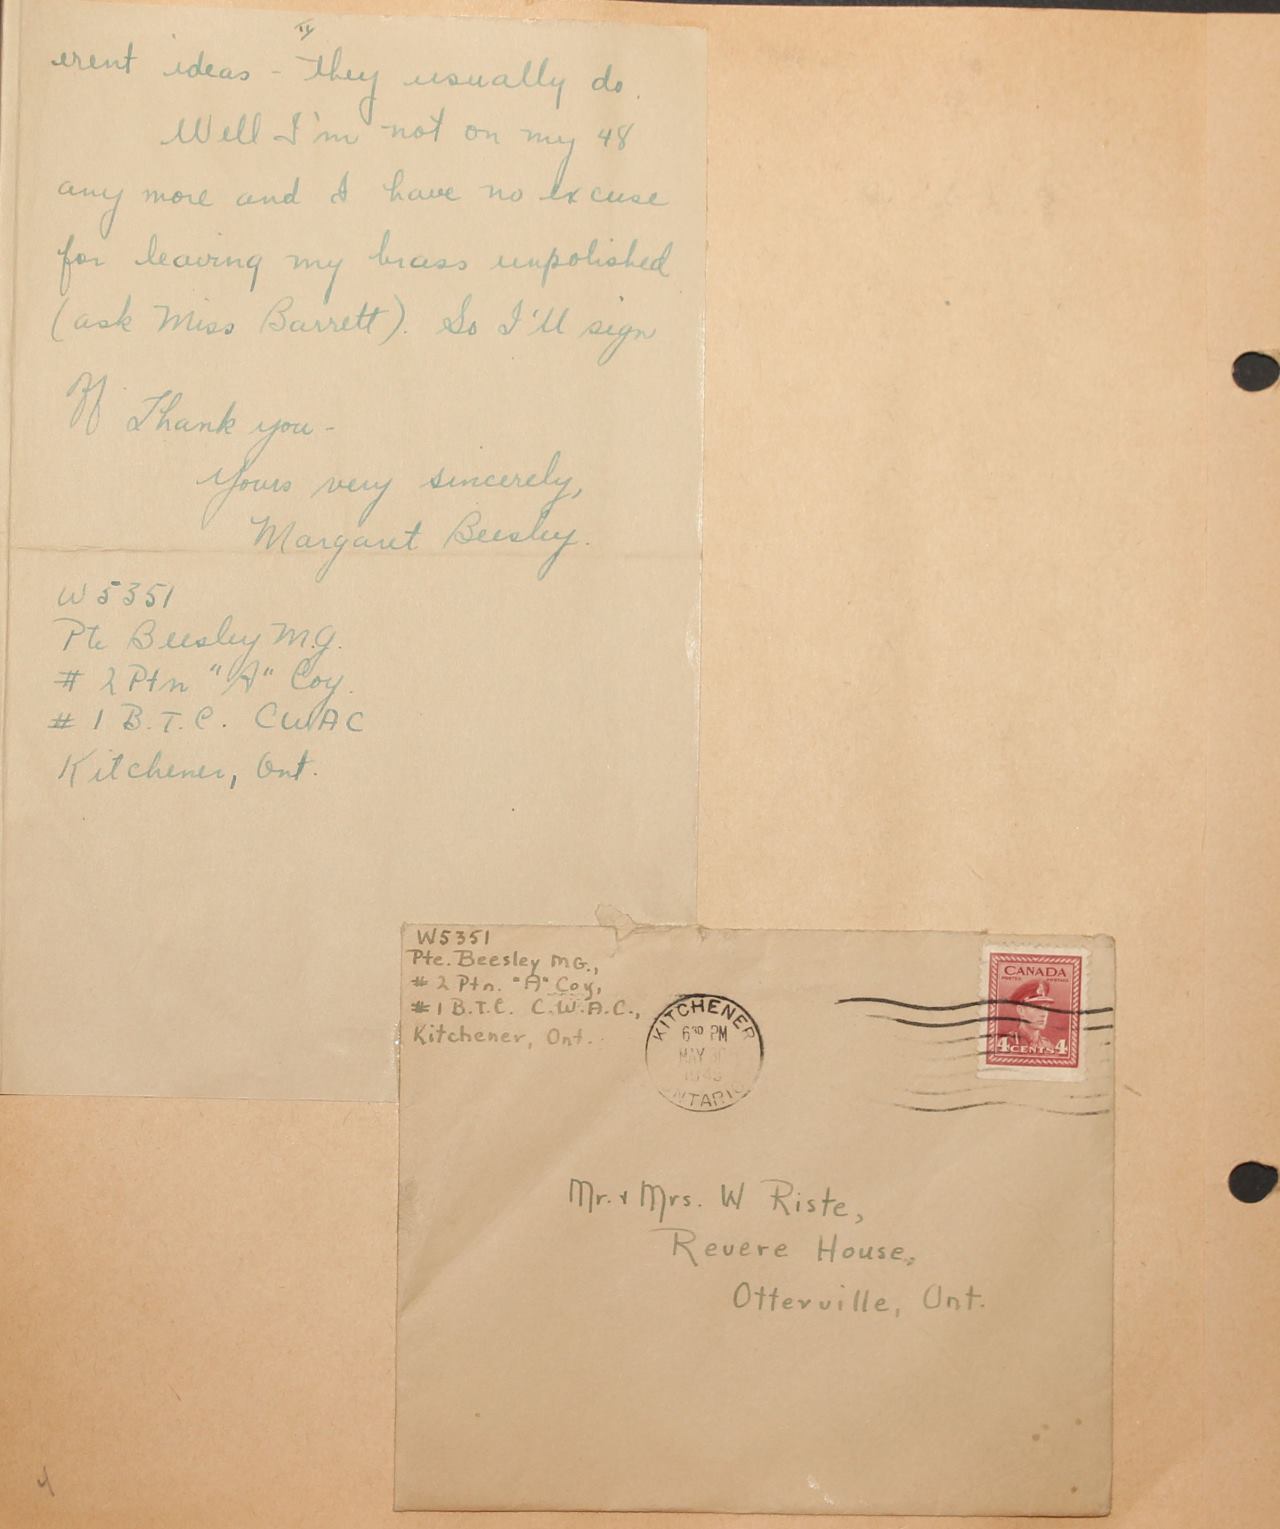 II
erent ideas - they usually do.
Well I'm not on my 48
any more and I have no excuse
for leaving my brass unpolished
(ask Miss Barrett). So I'll sign
off
Thank you -
Yours very sincerely,
Margaret Beesley.
W5351
Pte Beesley M.G.
# 2 Ptn "A" Coy.
# 1 B.T.C. CWAC
Kitchener, Ont.
W5351
Pte. Beesley MG.,
# 2 Ptn. "A" Coy,
# 1 B.T.C. C.W.A.C.,
Kitchener, Ont.
KITCHENER
6 30 PM
MAY 30
ONTARIO
CANADA
POSTES POSTAGE
4 CENTS 4
Mr. & Mrs. W Riste,
Revere House,
Otterville, Ont.
4